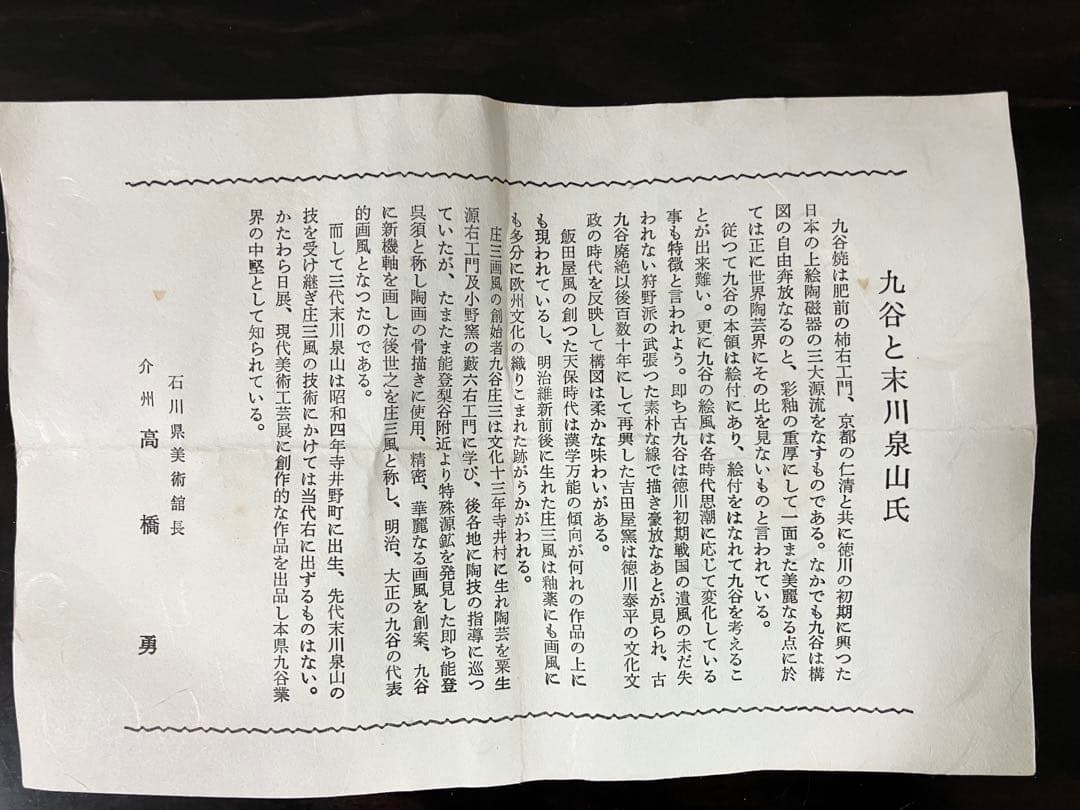 九谷と末川泉山氏
九谷焼は肥前の柿右工門、京都の仁清と共に徳川の初期に興つた
日本の上絵陶磁器の三大源流をなすものである。なかでも九谷は構
図の自由奔放なるのと、彩釉の重厚にして一面また美麗なる点に於
ては正に世界陶芸界にその比を見ないものと言われている。
従つて九谷の本領は絵付にあり、絵付をはなれて九谷を考えるこ
とが出来難い。更に九谷の絵風は各時代思潮に応じて変化している
事も特徴と言われよう。即ち古九谷は徳川初期戦国の遺風の未だ失
われない狩野派の武張つた素朴な線で描き豪放なあとが見られ、古
九谷廃絶以後百数十年にして再興した吉田屋窯は徳川泰平の文化文
政の時代を反映して構図は柔かな味わいがある。
飯田屋風の創つた天保時代は漢学万能の傾向が何れの作品の上に
も現われているし、明治維新前後に生れた庄三風は釉薬にも画風に
も多分に欧州文化の織りこまれた跡がうかがわれる。
庄三画風の創始者九谷庄三は文化十三年寺井村に生れ陶芸を粟生
源右工門及小野窯の藪六右工門に学び、後各地に陶技の指導に巡つ
ていたが、たまたま能登梨谷附近より特殊源鉱を発見した即ち能登
呉須と称し陶画の骨描きに使用、精密、華麗なる画風を創案、九谷
に新機軸を画した後世之を庄三風と称し、明治、大正の九谷の代表
的画風となつたのである。
而して三代末川泉山は昭和四年寺井野町に出生、先代末川泉山の
技を受け継ぎ庄三風の技術にかけては当代右に出ずるものはない。
かたわら日展、現代美術工芸展に創作的な作品を出品し本県九谷業
界の中堅として知られている。
石川県美術舘長
介州 高橋 勇